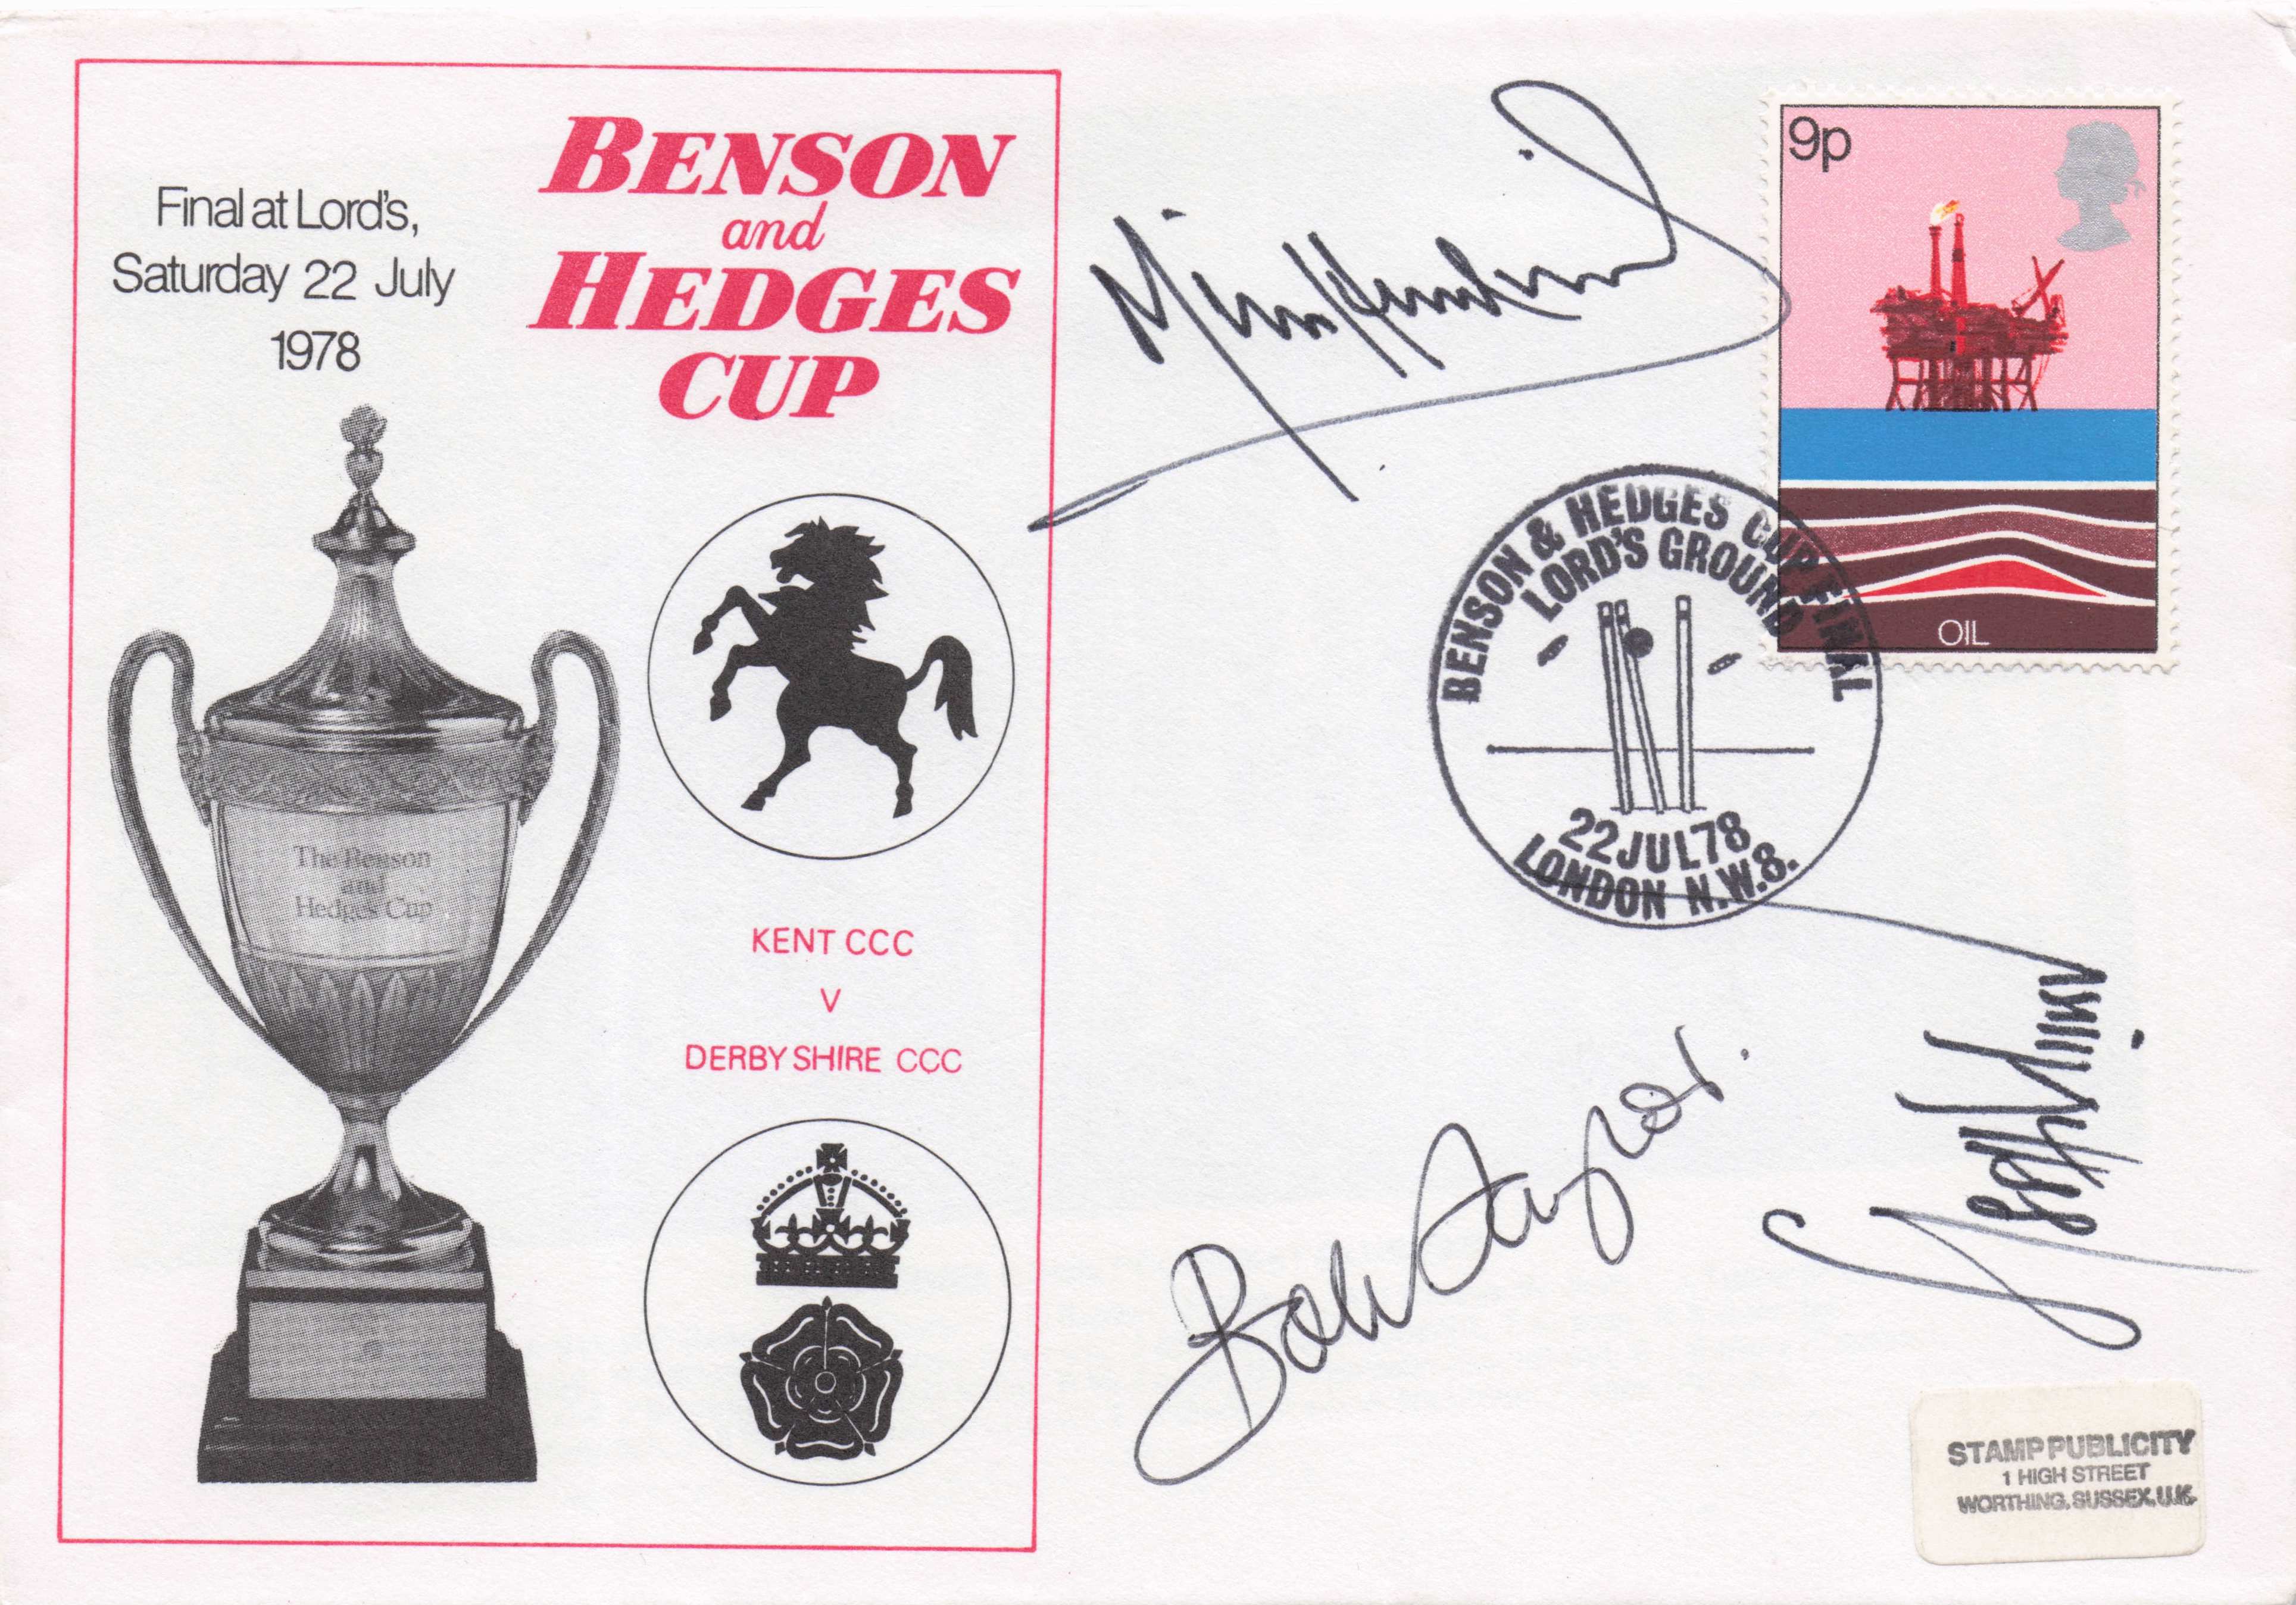 Final at Lord's,
Saturday 22 July
1978
BENSON
and
HEDGES
CUP
The Benson
and
Hedges Cup
KENT CCC
V
DERBYSHIRE CCC
Mike Hendrick
9p
OIL
BENSON & HEDGES CUP FINAL
LORD'S GROUND
22 JUL 78
LONDON N.W.8.
Bob Taylor.
STAMP PUBLICITY
1 HIGH STREET
WORTHING, SUSSEX, U.K.